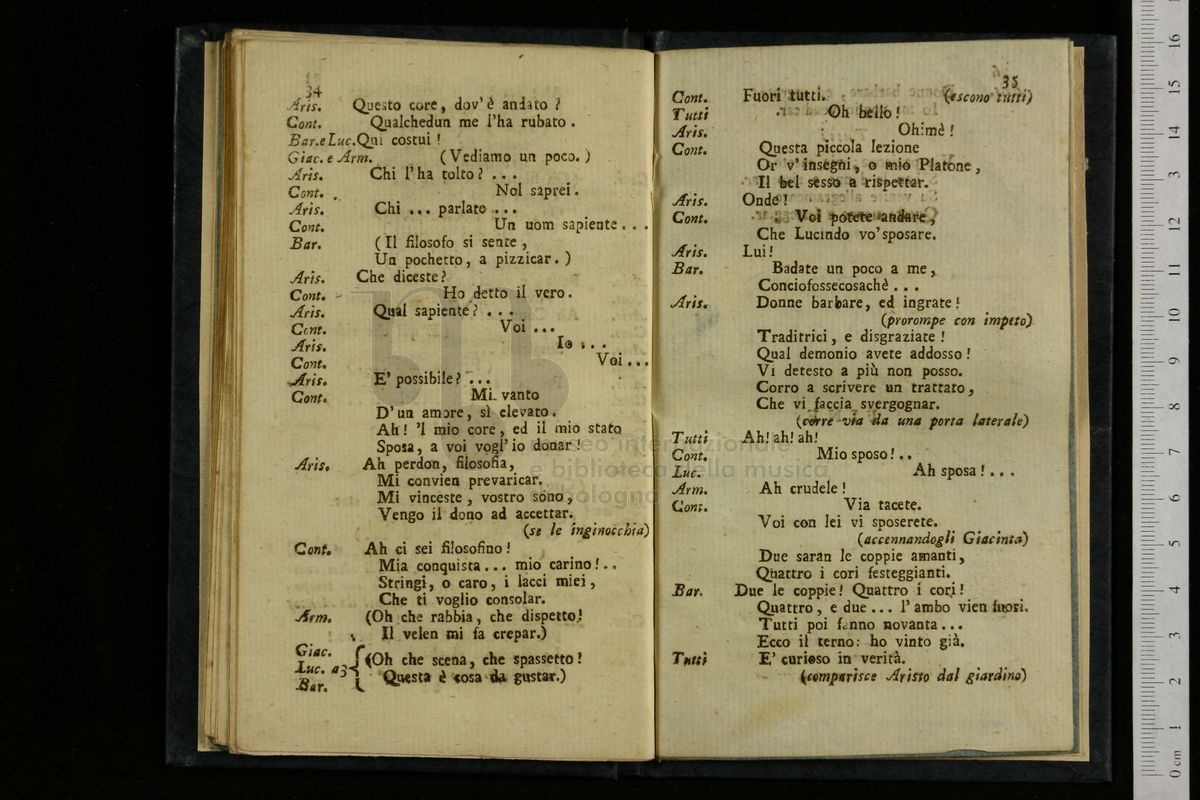 34
Aris. Questo core, dov'è andato?
Cont. Qualchedun me l'ha rubato.
Bar. e Luc. Qui costui!
Giac. e Arm. (Vediamo un poco.)
Aris. Chi l'ha tolto? ...
Cont. Nol saprei.
Aris. Chi ... parlate ...
Cont. Un uom sapiente...
Bar. (Il filosofo si sente,
Un pochetto, a pizzicar.)
Aris. Che diceste?
Cont. Ho detto il vero.
Aris. Qual sapiente? ...
Cont. Voi ...
Aris. Io ...
Cont. Voi ...
Aris. E' possibile? ...
Cont. Mi vanto
D'un amore, sì elevato.
Ah! 'l mio core, ed il mio stato
Sposa, a voi vogl'io donar!
Aris. Ah perdon, filosofia,
Mi convien prevaricar.
Mi vinceste, vostro sono,
Vengo il dono ad accettar.
(se le inginocchia)
Cont. Ah ci sei filosofino!
Mia conquista... mio carino!..
Stringi, o caro, i lacci miei,
Che ti voglio consolar.
Arm. (Oh che rabbia, che dispetto!
Il velen mi fa crepar.)
Giac.
Luc. a3 (Oh che scena, che spassetto!
Bar. Questa è cosa da gustar.)
35
Cont. Fuori tutti. (escono tutti)
Tutti Oh bello!
Aris. Ohimè!
Cont. Questa piccola lezione
Or v'insegni, o mio Platone,
Il bel sesso a rispettar.
Aris. Onde!
Cont. Voi potete andare,
Che Lucindo vo' sposare.
Aris. Lui!
Bar. Badate un poco a me,
Conciofossecosachè ...
Aris. Donne barbare, ed ingrate!
(prorompe con impeto)
Traditrici, e disgraziate!
Qual demonio avete addosso!
Vi detesto a più non posso.
Corro a scrivere un trattato,
Che vi faccia svergognar.
(corre via da una porta laterale)
Tutti Ah! ah! ah!
Cont. Mio sposo!..
Luc. Ah sposa!...
Arm. Ah crudele!
Cont. Via tacete.
Voi con lei vi sposerete.
(accennandogli Giacinta)
Due saran le coppie amanti,
Quattro i cori festeggianti.
Bar. Due le coppie! Quattro i cori!
Quattro, e due ... l'ambo vien fuori.
Tutti poi fanno novanta...
Ecco il terno: ho vinto già.
Tutti E' curioso in verità.
(comparisce Aristo dal giardino)
museo internazionale
e biblioteca della musica
bologna
0 cm 1 2 3 4 5 6 7 8 9 10 11 12 13 14 15 16